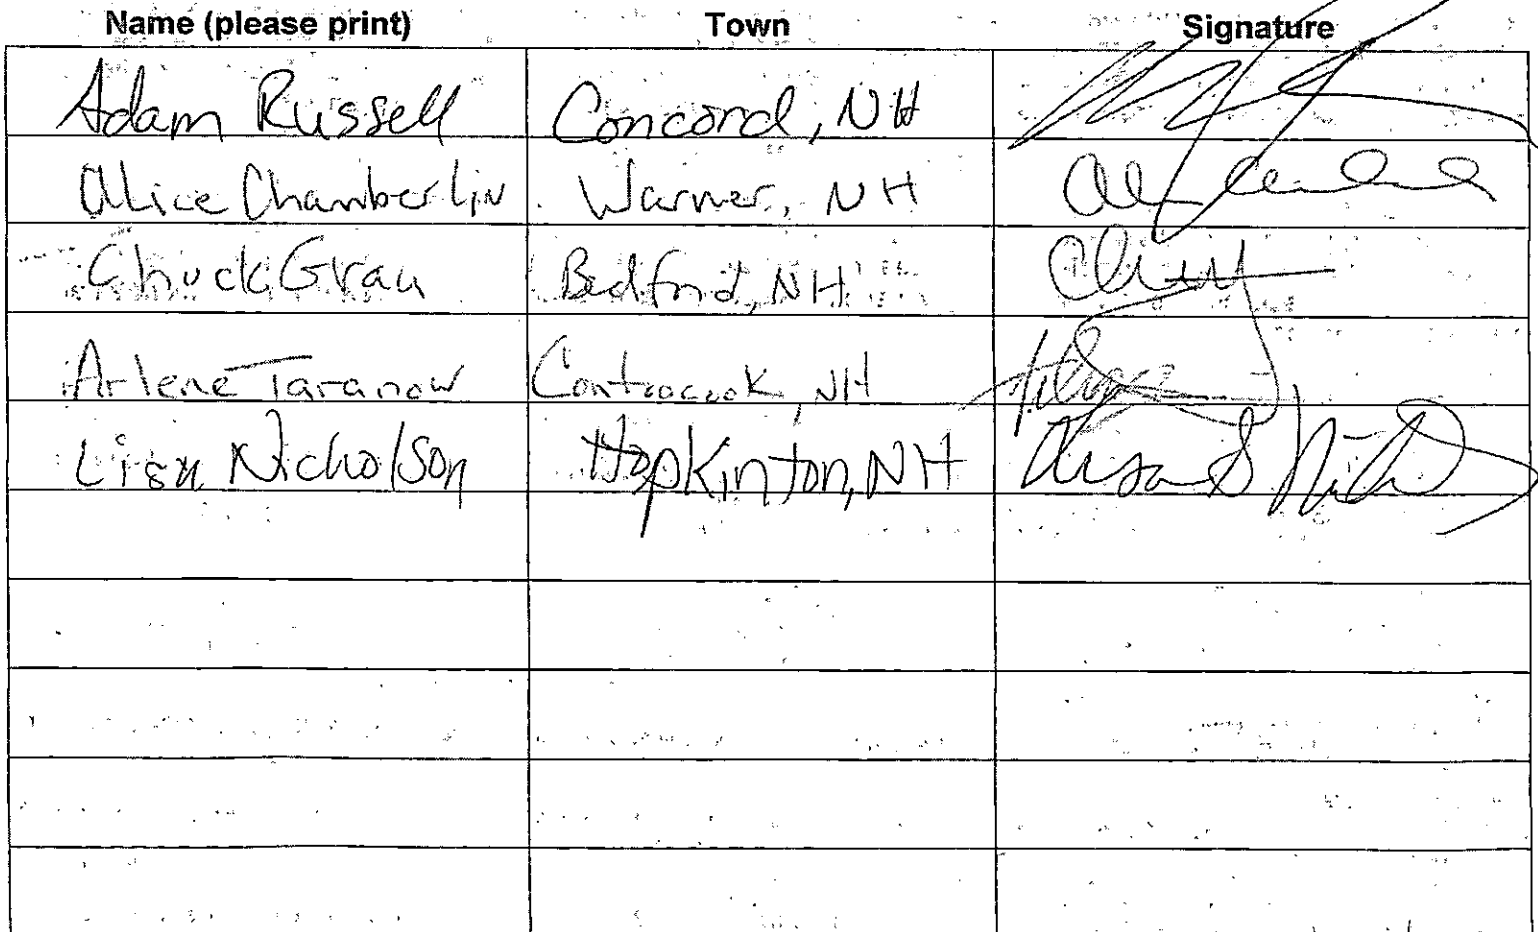 Name (please print) Town Signature
Adam Russell Concord, NH
Alice Chamberlin Warner, NH
Chuck Grau Bedford, NH
Arlene Taranow Contoocook, NH
Lisa Nicholson Hopkinton, NH Lisa S